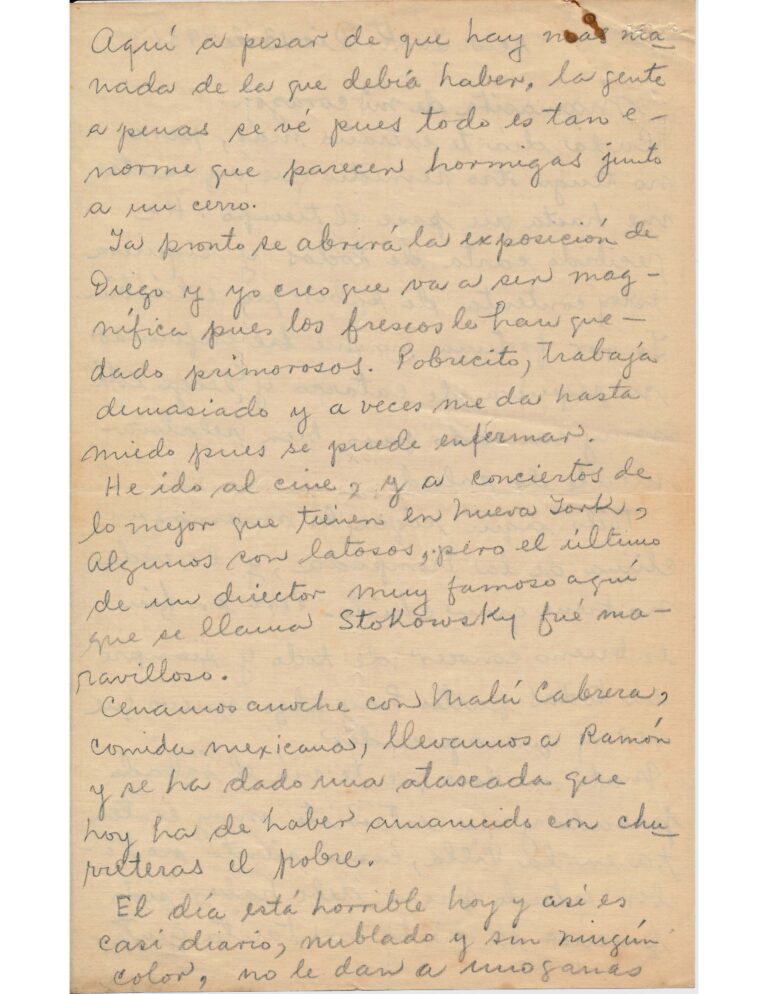 Aquí a pesar de que hay mas ma-
nada de la que debía haber, la gente
a penas se vé pues todo es tan e-
norme que parecen hormigas junto
a un cerro.
Ya pronto se abrirá la exposición de
Diego y yo creo que va a ser mag-
nífica pues los frescos le han que-
dado primorosos. Pobrecito, trabaja
demasiado y a veces me da hasta
miedo pues se puede enfermar.
He ido al cine, y a conciertos de
lo mejor que tienen en Nueva York,
Algunos son latosos, pero el último
de un director muy famoso aquí
que se llama Stokowsky fué ma-
ravilloso.
Cenamos anoche con Malú Cabrera,
comida mexicana, llevamos a Ramón
y se ha dado una atascada que
hoy ha de haber amanecido con chu-
rreteras el pobre.
El día está horrible hoy y así es
casi diario, nublado y sin ningún
color, no le dan a uno ganas